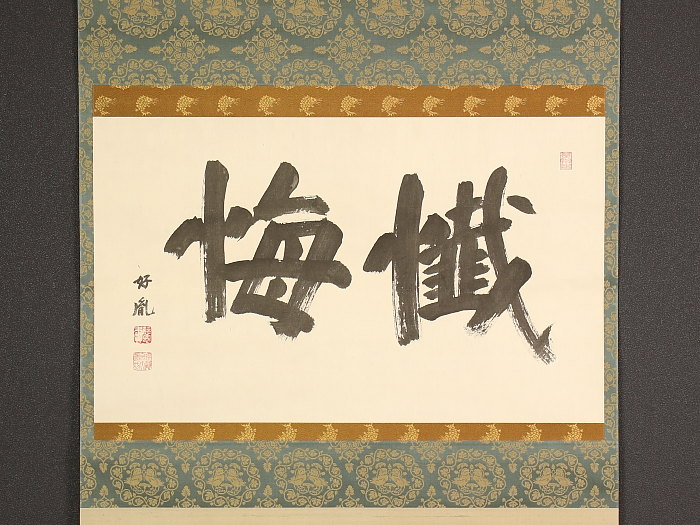 懺悔
好胤